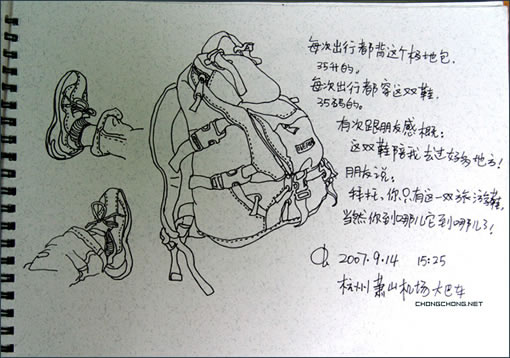 每次出行都背这个场地包.
35升的。
每次出行都穿这双鞋.
35码的。
有次跟朋友感概:
这双鞋陪我去过好多地方!
朋友说:
拜托,你只有这一双旅游鞋,
当然你到哪儿它到哪儿了!
2007.9.14 15:25
杭州萧山机场大巴车
CHONGCHONG.NET